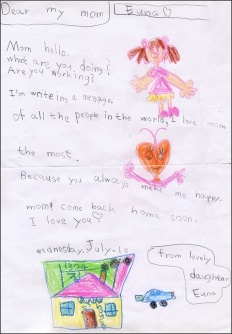 Dear my mom
Euna♡
Mom hello.
what are you doing?
Are you working?
I'm writeing a message.
of all the people in the world, I love mom
the most.
Because you always make me happy.
mom! come back home soon.
I love you♡
wednesday. July. 1
from lovely
daughear
Euna